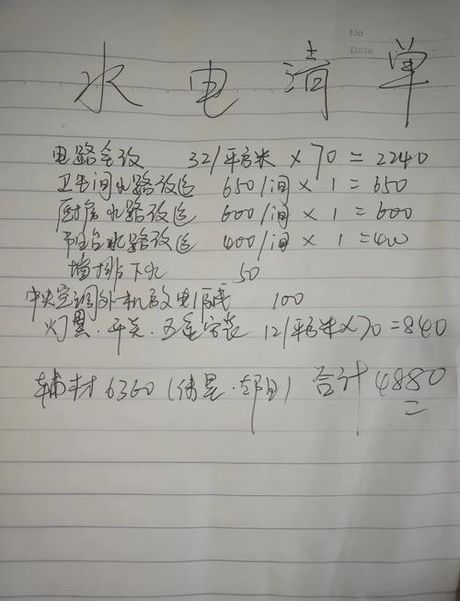 No
Date
水电清单
电路全改 32/平方米×70=2240
卫生间水路改造 650/间×1=650
厨房水路改造 600/间×1=600
阳台水路改造 400/间×1=400
增排下水 50
中央空调外机改电源线 100
灯具.开关.五金安装 12/平方米×70=840
辅材6360 合计4880